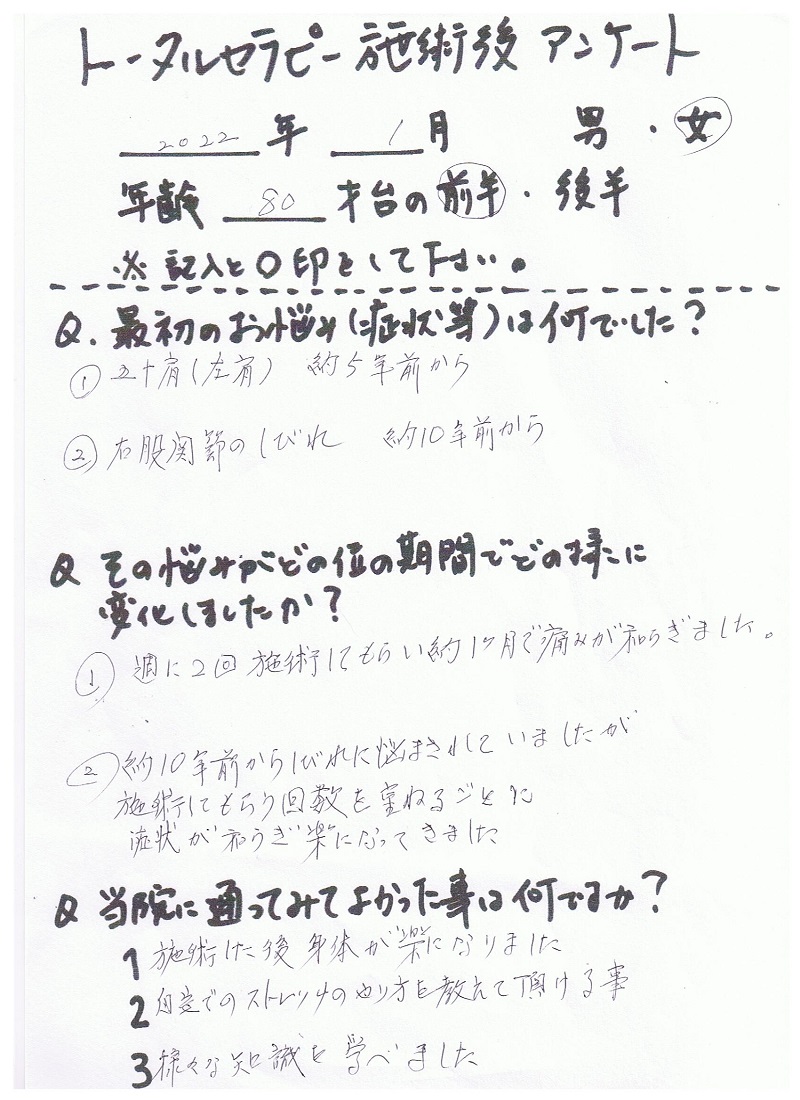 トータルセラピー施術後 アンケート
2022年 1月 男・女
年齢 80 才台の前半・後半
※記入と○印をして下さい。
Q.最初のお悩み(症状等)は何でした?
① 五十肩(左肩) 約5年前から
② 右股関節のしびれ 約10年前から
Q その悩みがどの位の期間でどの様に
変化しましたか?
① 週に2回施術してもらい約1ヶ月で痛みが和らぎました。
② 約10年前からしびれに悩まされていましたが
施術してもらう回数を重ねるごとに
症状が和らぎ楽になってきました
Q 当院に通ってみてよかった事は何ですか?
1 施術した後身体が楽になりました
2 自宅でのストレッチのやり方を教えて頂ける事
3 様々な知識を学べました